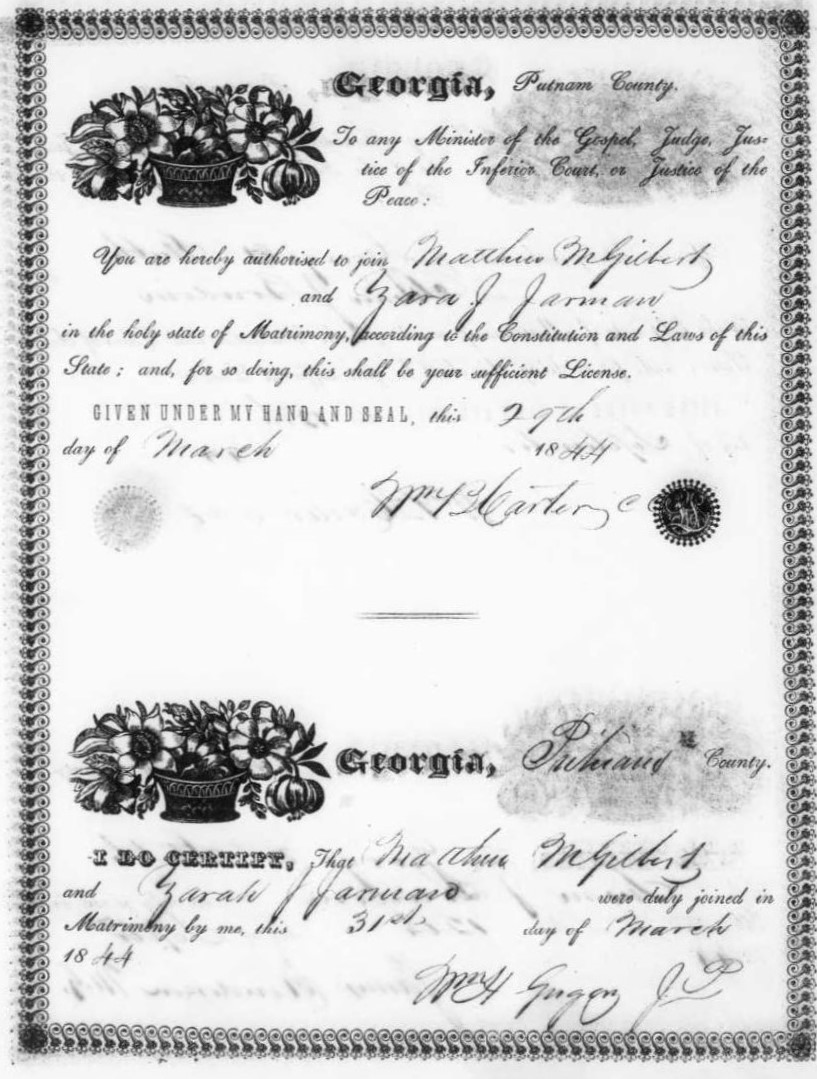 Georgia, Putnam County.
To any Minister of the Gospel, Judge, Jus-
tice of the Inferior Court, or Justice of the
Peace:
You are hereby authorised to join Matthew McGilbert
and Zara J Jarman
in the holy state of Matrimony, according to the Constitution and Laws of this
State; and, for so doing, this shall be your sufficient License.
GIVEN UNDER MY HAND AND SEAL, this 29th
day of March 1844
Wm B Carter
Georgia, Putnam County.
I DO CERTIFY, That Matthew McGilbert
and Zarah J Jarman were duly joined in
Matrimony by me, this 31st day of March
1844
Wm H JP